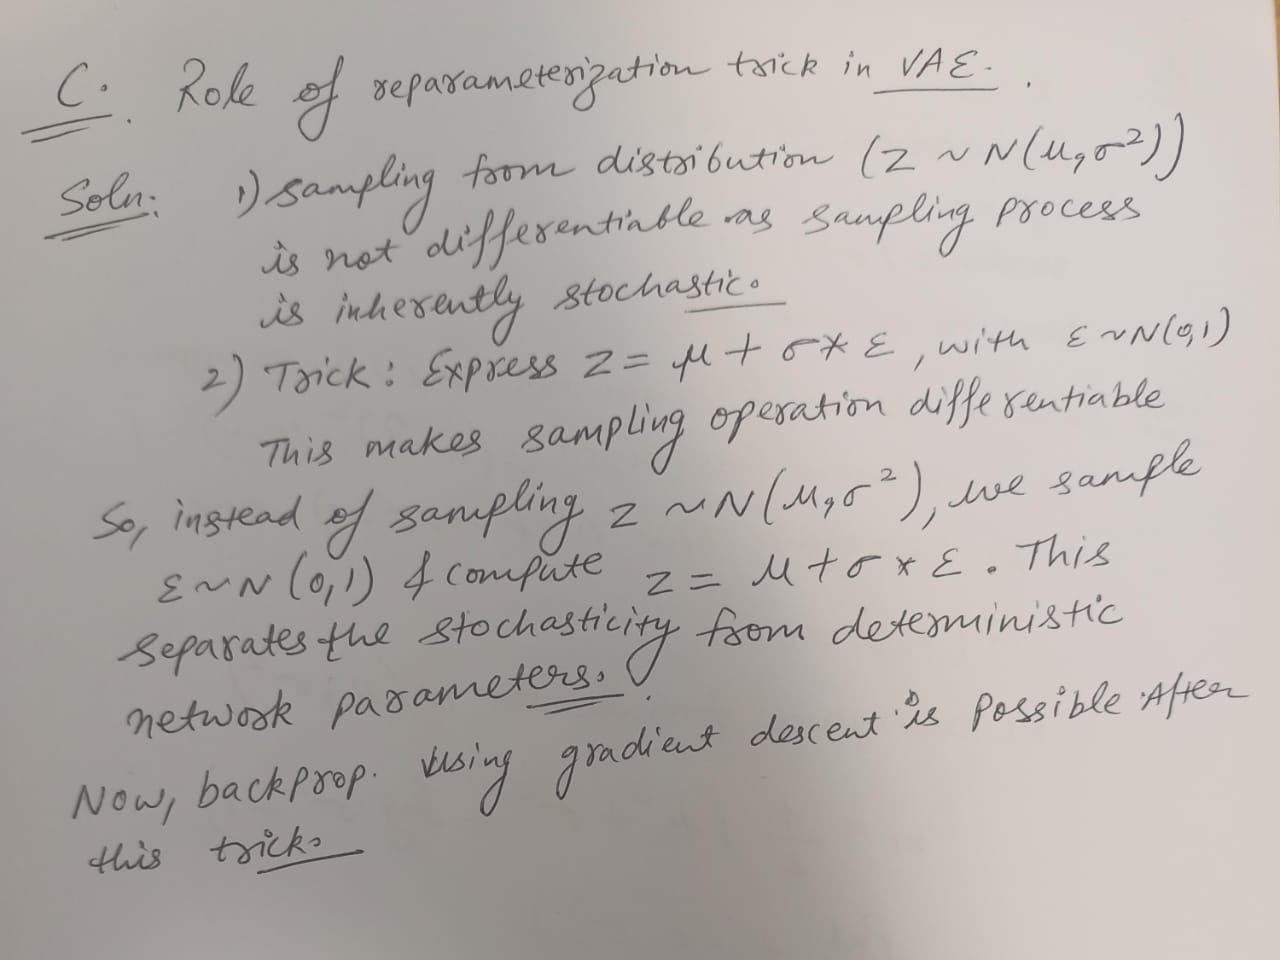 C. Role of reparameterization trick in VAE.
Soln: 1) Sampling from distribution (z ~ N(μ, σ²))
is not differentiable as sampling process
is inherently stochastic.
2) Trick: Express z = μ + σ * ε, with ε ~ N(0,1)
This makes sampling operation differentiable
So, instead of sampling z ~ N(μ, σ²), we sample
ε ~ N(0,1) & compute z = μ + σ * ε. This
separates the stochasticity from deterministic
network parameters.
Now, backprop. using gradient descent is possible After
this trick.